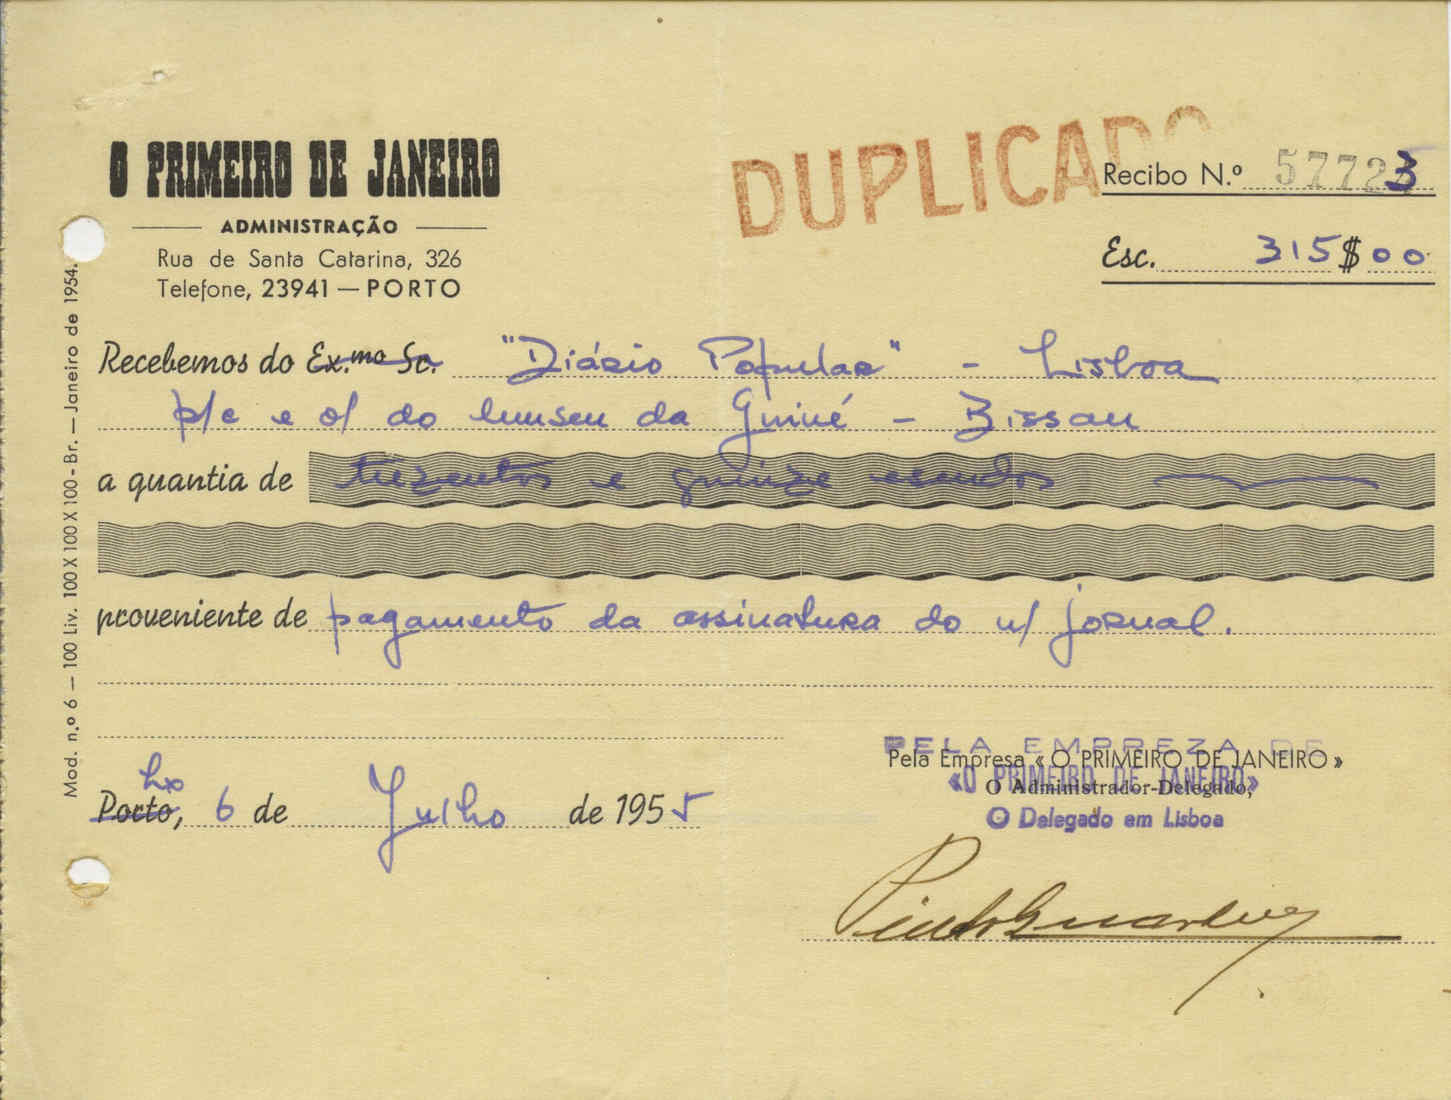 O PRIMEIRO DE JANEIRO
ADMINISTRAÇÃO
Rua de Santa Catarina, 326
Telefone, 23941 — PORTO
DUPLICADO
Recibo N.º 57723
Esc. 315$00
Recebemos do Ex.mo Sr. "Diário Popular" - Lisboa
p/c e o/ do Museu da Guiné - Bissau
a quantia de trezentos e quinze escudos
proveniente de pagamento da assinatura do n/ jornal.
Lxª
Porto, 6 de Julho de 1955
PELA EMPREZA DE
Pela Empresa « O PRIMEIRO DE JANEIRO »
«O PRIMEIRO DE JANEIRO»
O Administrador-Delegado,
O Delegado em Lisboa
Mod. n.º 6 — 100 Liv. 100 X 100 X 100 - Br. — Janeiro de 1954.